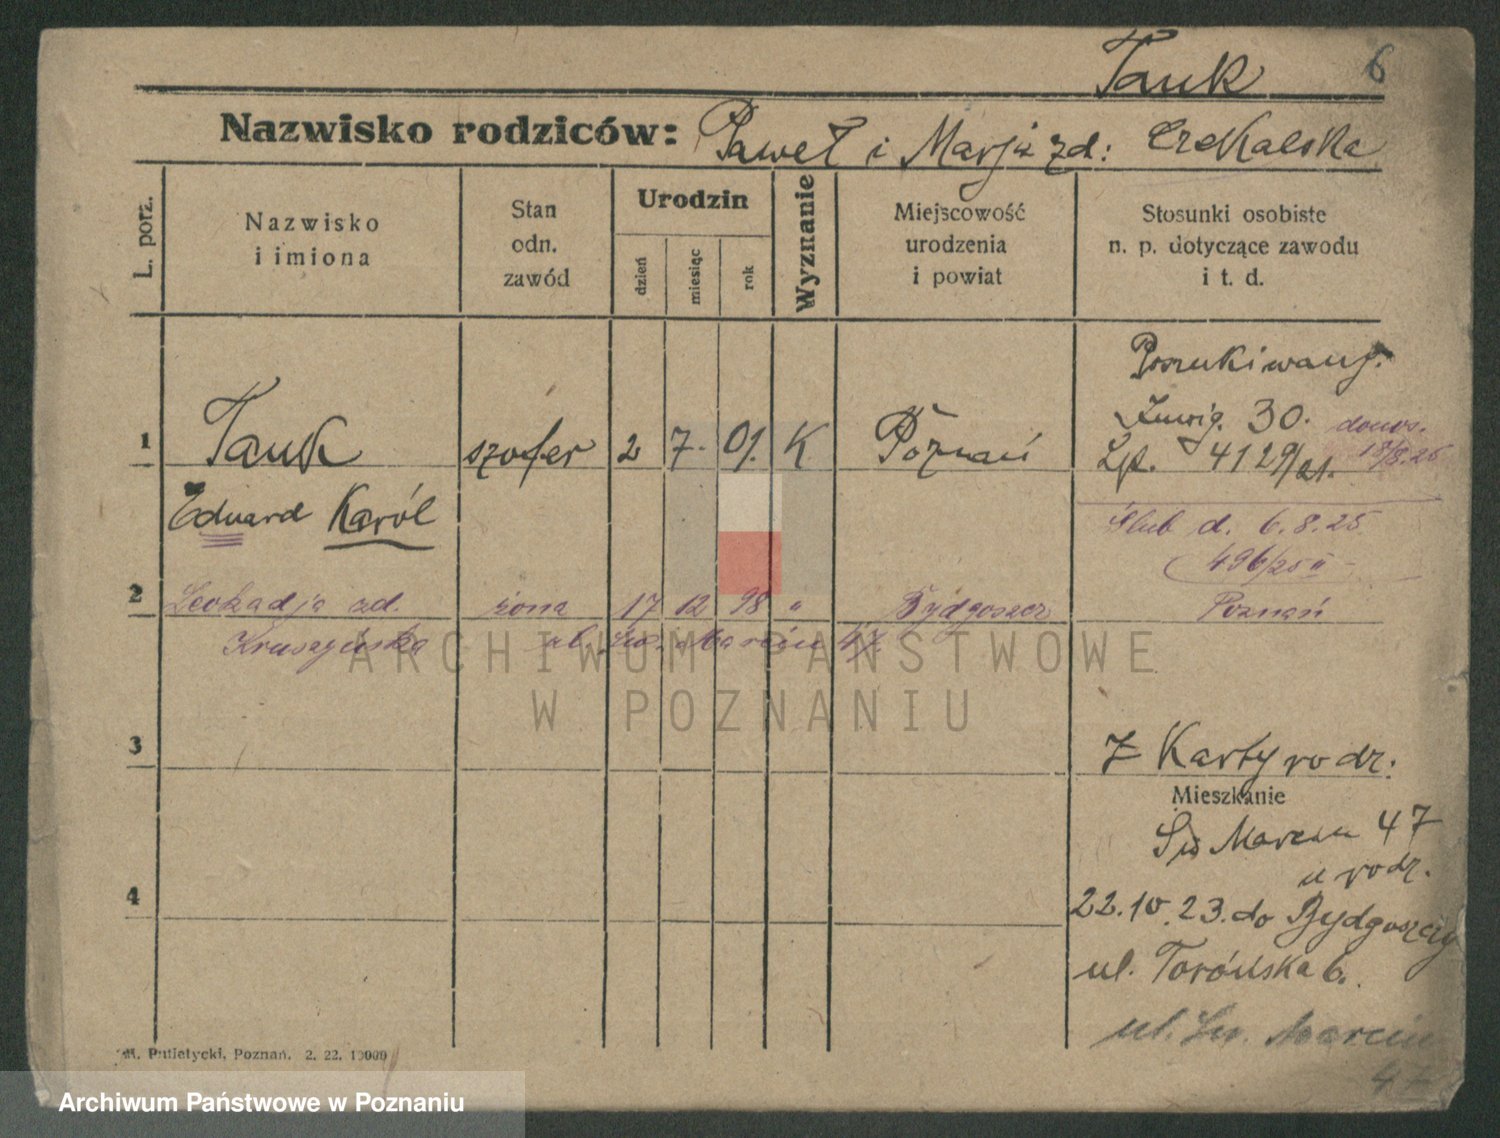 Tauk 6
Nazwisko rodziców: Paweł i Marja zd: Czekalska
L. porz.
Nazwisko
i imiona
Stan
odn.
zawód
Urodzin
dzień
miesiąc
rok
Wyznanie
Miejscowość
urodzenia
i powiat
Stosunki osobiste
n. p. dotyczące zawodu
i t. d.
Poszukiwany.
30. donos.
1 Tauk szofer 2 7. 01. K Poznań 4129/21. 18/8.25
Eduard Karól
Ślub d. 6.8.25
496/25 II
2 Leokadja zd. żona 17 12 98 " Bydgoszcz Poznań
Kruszyńska ul. Św. Marcin 47.
ARCHIWUM PAŃSTWOWE
W POZNANIU
3 Z Karty rodz:
Mieszkanie
Św Marcin 47
u rodz.
4 22.10.23. do Bydgoszczy
ul. Toruńska 6.
ul. Św. Marcin
47
M. Putiatycki, Poznań. 2. 22. 10000
Archiwum Państwowe w Poznaniu